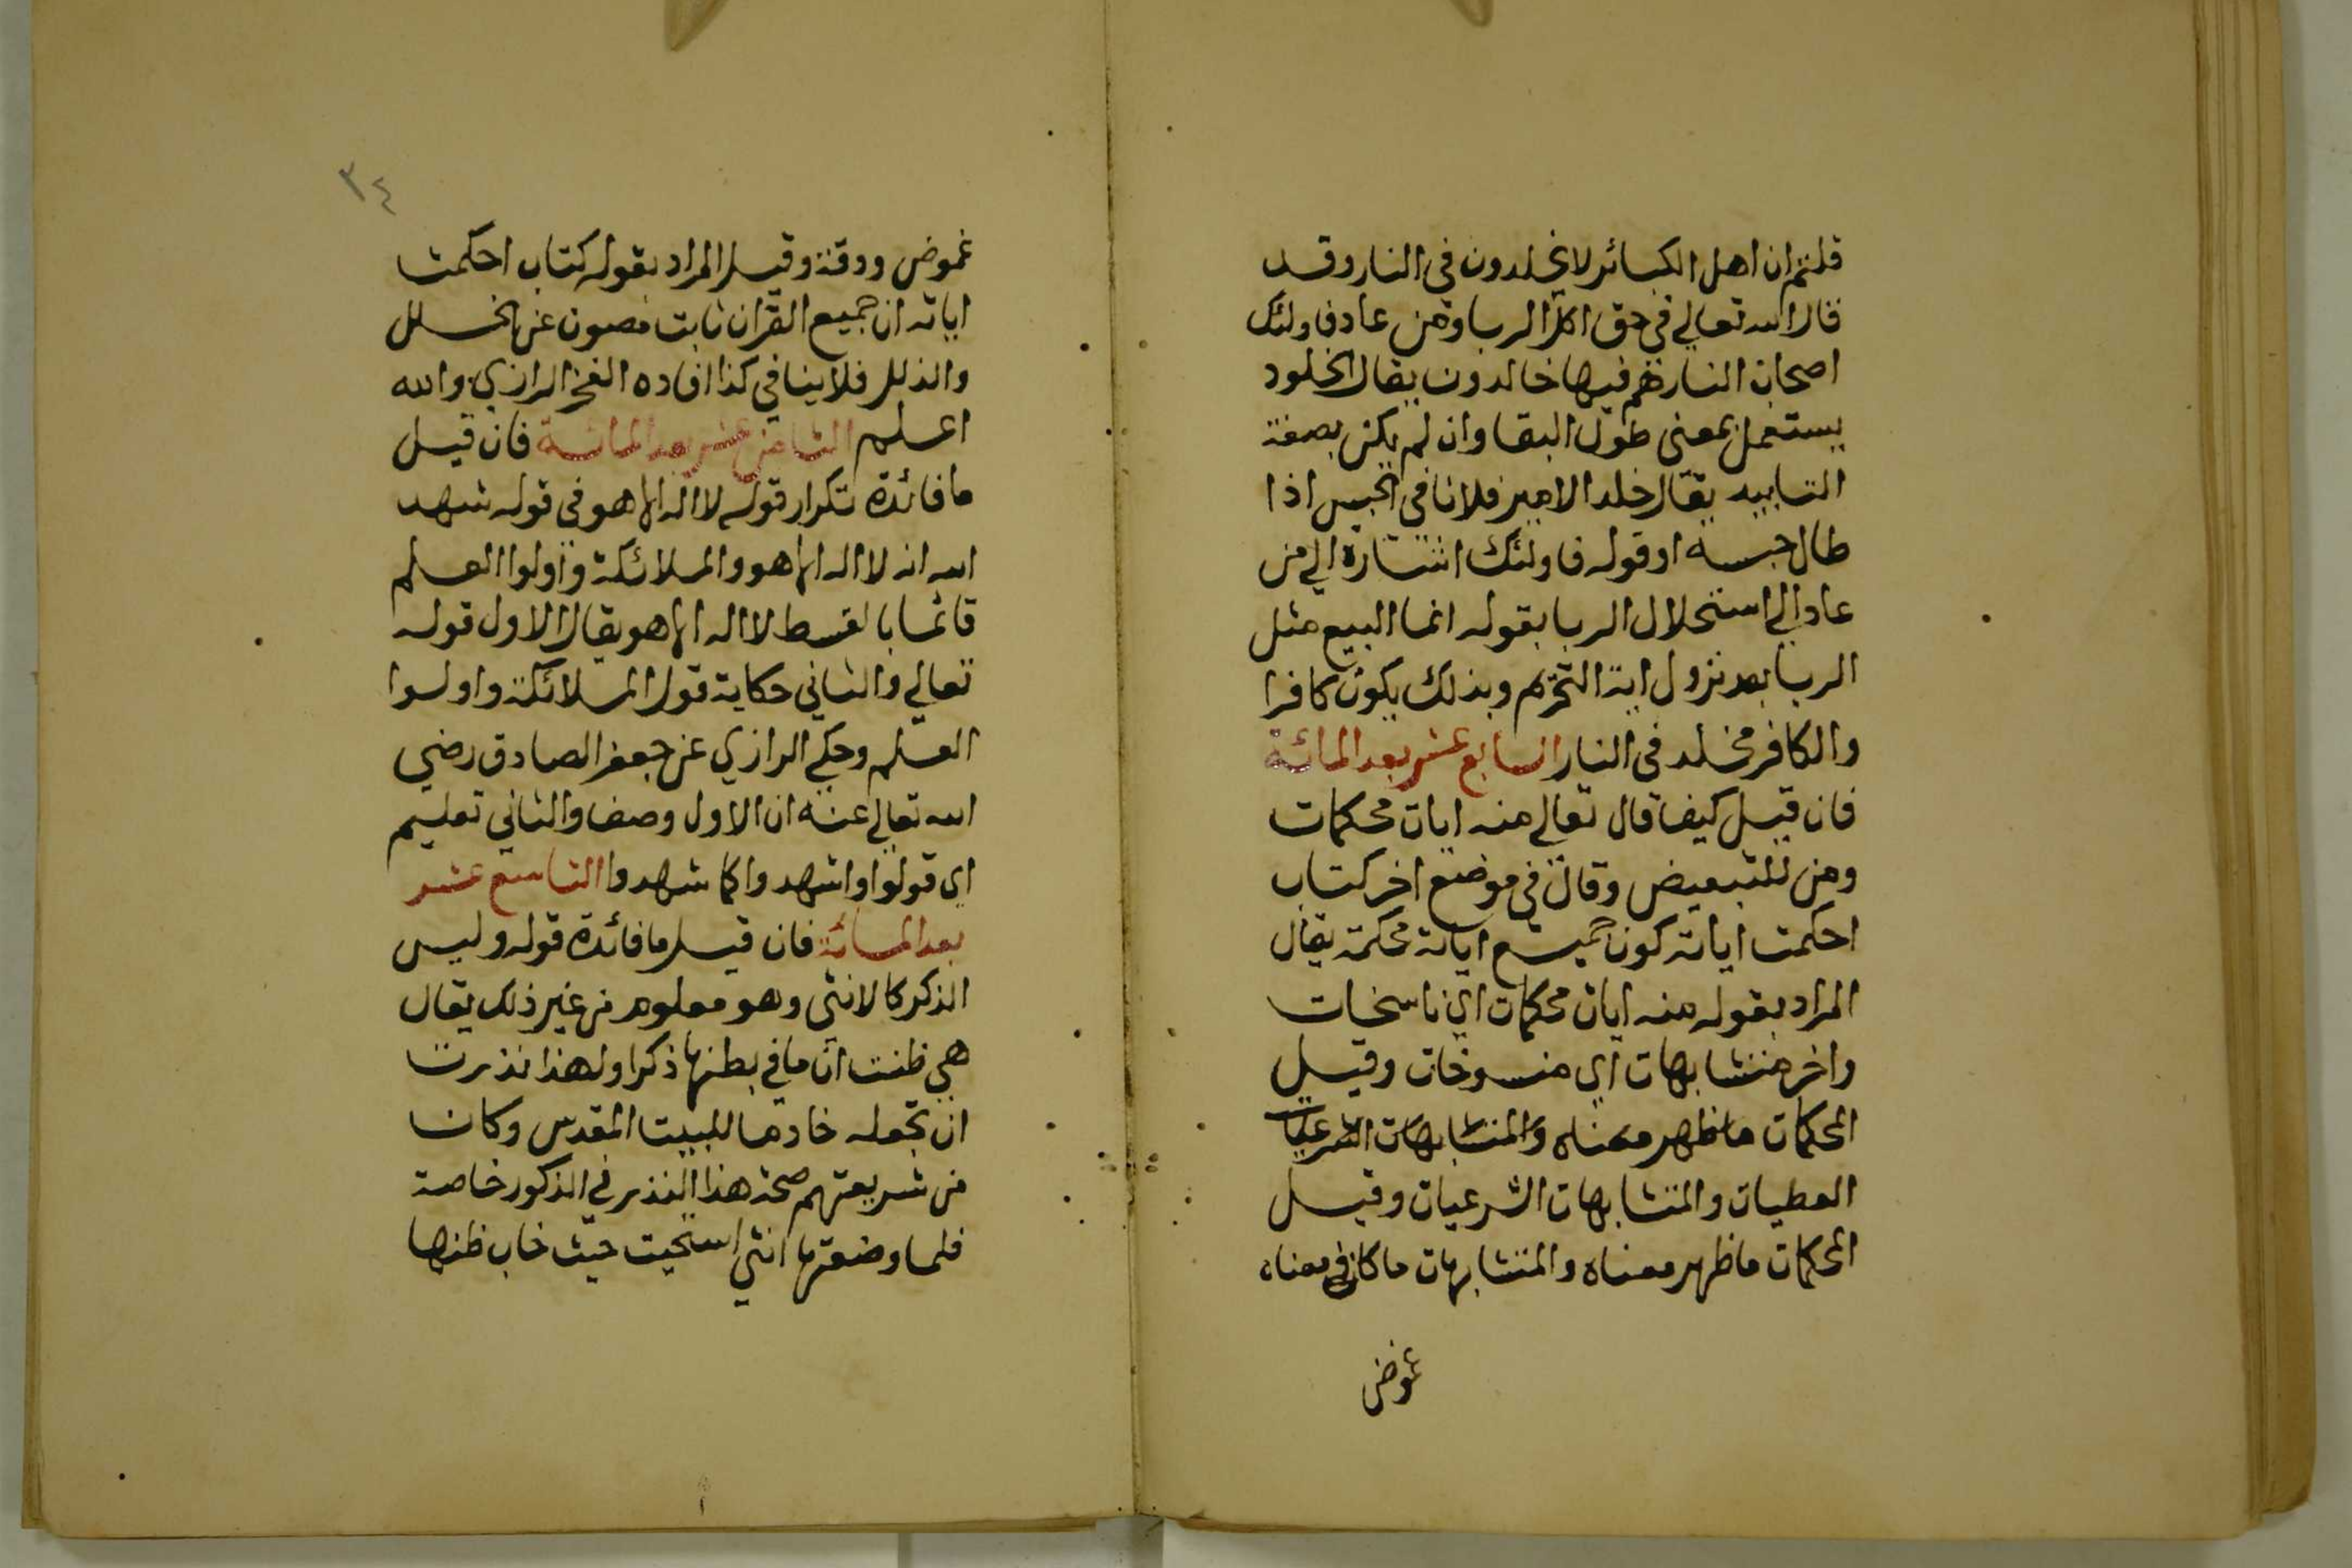 قلتم ان اهل الكبائر لا يخلدون في النار وقد
قال الله تعالي في حق اكل الربا ومن عاد فاولئك
اصحاب النار هم فيها خالدون يقال الخلود
يستعمل بمعنى طول البقا وان لم يكن بصفة
التابيد يقال خلد الامير فلانا في الحبس اذا
طال حبسه او قوله فاولئك اشارة الي من
عاد الي استحلال الربا بقوله انما البيع مثل
الربا بعد نزول اية التحريم وبذلك يكون كافرا
والكافر مخلد في النار السابع عشر بعد المائة
فان قيل كيف قال تعالي منه ايات محكمات
ومن للتبعيض وقال في موضع اخر كتاب
احكمت اياته كون جميع اياته محكمة يقال
المراد بقوله منه ايات محكمات اي ناسخات
واخر متشابهات اي منسوخات وقيل
المحكمات ما ظهر معناه والمتشابهات الشرعيات
العطيات والمتشابهات الشرعيات وقيل
المحكمات ما ظهر معناه والمتشابهات ما كان في معناه
غموض
٣٤
غموض ودقة وقيل المراد بقوله كتاب احكمت
اياته ان جميع القران ثابت مصون عن الخلل
والذلل فلا ينافي كذا افاده الفخر الرازي والله
اعلم الثامن عشر بعد المائة فان قيل
ما فائدة تكرار قوله لا اله الا هو في قوله شهد
الله انه لا اله الا هو والملائكة واولوا العلم
قائما بالقسط لا اله الا هو يقال الاول قوله
تعالي والثاني حكاية قول الملائكة واولوا
العلم وحكي الرازي عن جعفر الصادق رضي
الله تعالي عنه ان الاول وصف والثاني تعليم
اي قولوا واشهدوا كما شهدوا التاسع عشر
بعد المائة فان قيل ما فائدة قوله وليس
الذكر كالانثي وهو معلوم من غير ذلك يقال
هي ظنت ان ما في بطنها ذكرا ولهذا نذرت
ان تجعله خادما للبيت المقدس وكان
من شريعتهم صحة هذا النذر في الذكور خاصة
فلما وضعتها انثي استحيت حيث خاب ظنها